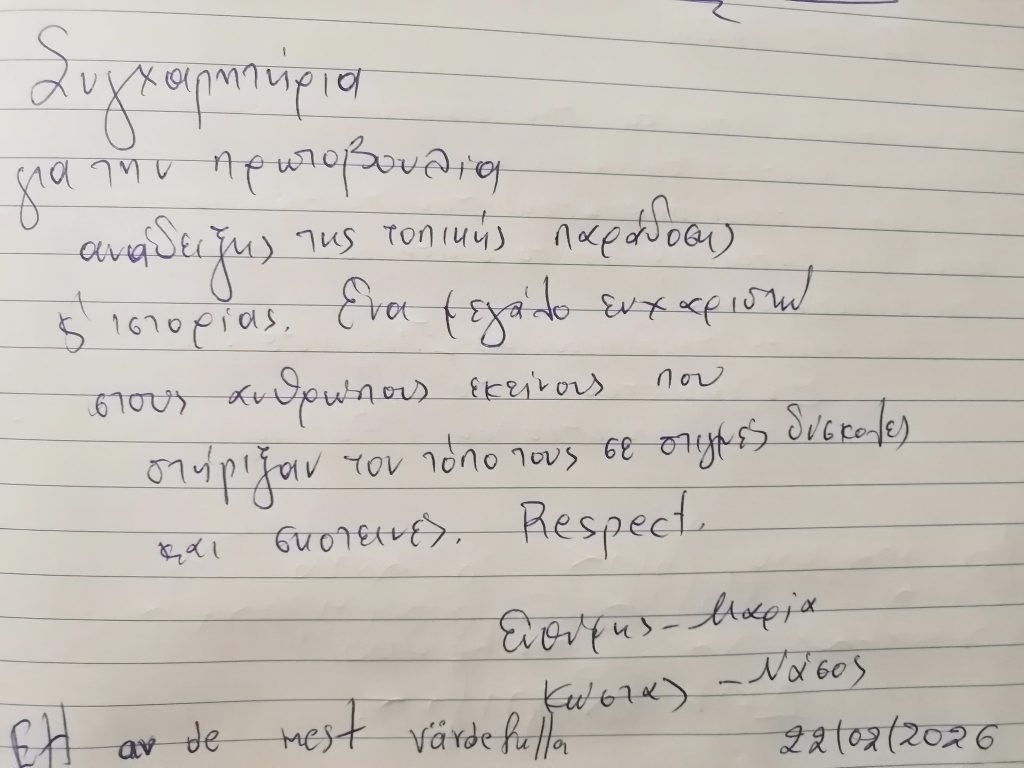 Συγχαρητήρια
για την πρωτοβουλία
ανάδειξης της τοπικής παράδοσης
& ιστορίας. Ένα μεγάλο ευχαριστώ
στους ανθρώπους εκείνους που
στήριξαν τον τόπο τους σε στιγμές δύσκολες
και σκοτεινές. Respect.
Ευθύμης - Μαρία
Κώστας - Νάσος
Ett av de mest värdefulla
22/02/2026